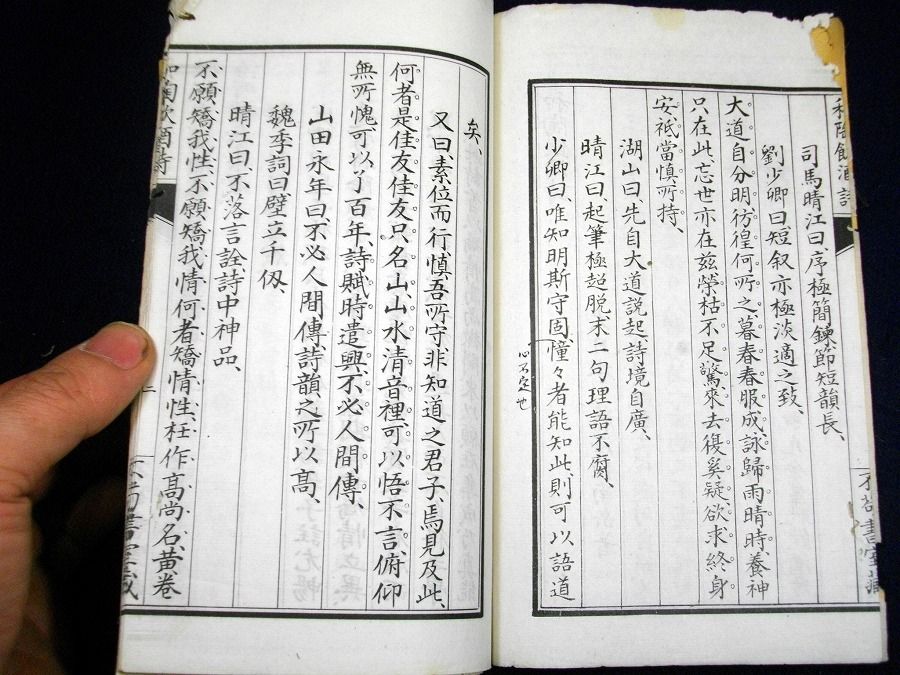 和陶飲酒詩
不苟書室藏
司馬晴江曰、序極簡鍊、節短韻長、
劉少卿曰、短叙亦極淡適之致、
大道自分明、彷徨何所之、暮春春服成、詠歸雨晴時、養神
只在此、忘世亦在玆、榮枯不足驚、來去復奚疑、欲求終身
安、祇當慎所持、
湖山曰、先自大道説起、詩境自廣、
晴江曰、起筆極超脱、末二句理語不腐、
少卿曰、唯知明斯守固、憧々者能知此、則可以語道
心不定也
矣、
又曰、素位而行、慎吾所守、非知道之君子、焉見及此、
何者是佳友、佳友只名山、山水清音裡、可以悟不言、俯仰
無所愧、可以了百年、詩賦時遣興、不必人間傳、
山田永年曰、不必人間傳、詩韻之所以高、
魏季詞曰、壁立千仭、
晴江曰、不落言詮、詩中神品、
不願矯我性、不願矯我情、何者矯情性、枉作高尚名、黄卷
和陶飲酒詩
二
不苟書室藏